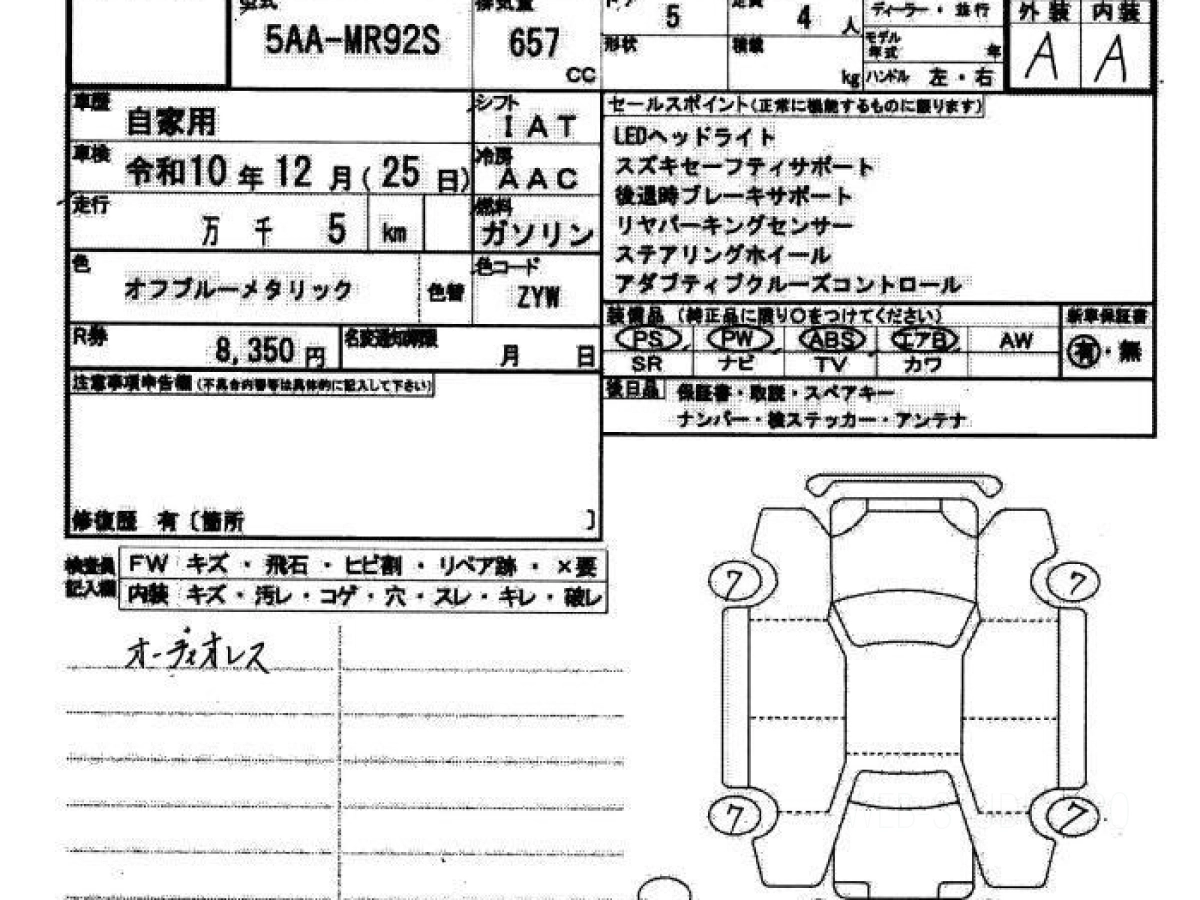 型式
5AA-MR92S
排気量
657
CC
ドア
5
定員
4 人
形状
積載
kg
ディーラー・並行
モデル
年式
年
ハンドル 左・右
外装 内装
A A
車歴
自家用
シフト
IAT
車検
令和10年12月(25日)
冷房
AAC
走行
万 千 5 km
燃料
ガソリン
色
オフブルーメタリック
色替
色コード
ZYW
R券
8,350円
名変通知期限
月 日
注意事項申告欄(不具合内容等は具体的に記入して下さい)
修復歴 有〔箇所 〕
セールスポイント(正常に機能するものに限ります)
LEDヘッドライト
スズキセーフティサポート
後退時ブレーキサポート
リヤパーキングセンサー
ステアリングホイール
アダプティブクルーズコントロール
装備品(純正品に限り○をつけてください)
PS PW ABS エアB AW
SR ナビ TV カワ
新車保証書
有・無
後日品
保証書・取説・スペアキー
ナンバー・検ステッカー・アンテナ
検査員
記入欄
FW キズ・飛石・ヒビ割・リペア跡・×要
内装 キズ・汚レ・コゲ・穴・スレ・キレ・破レ
オーディオレス
7 7
7 7